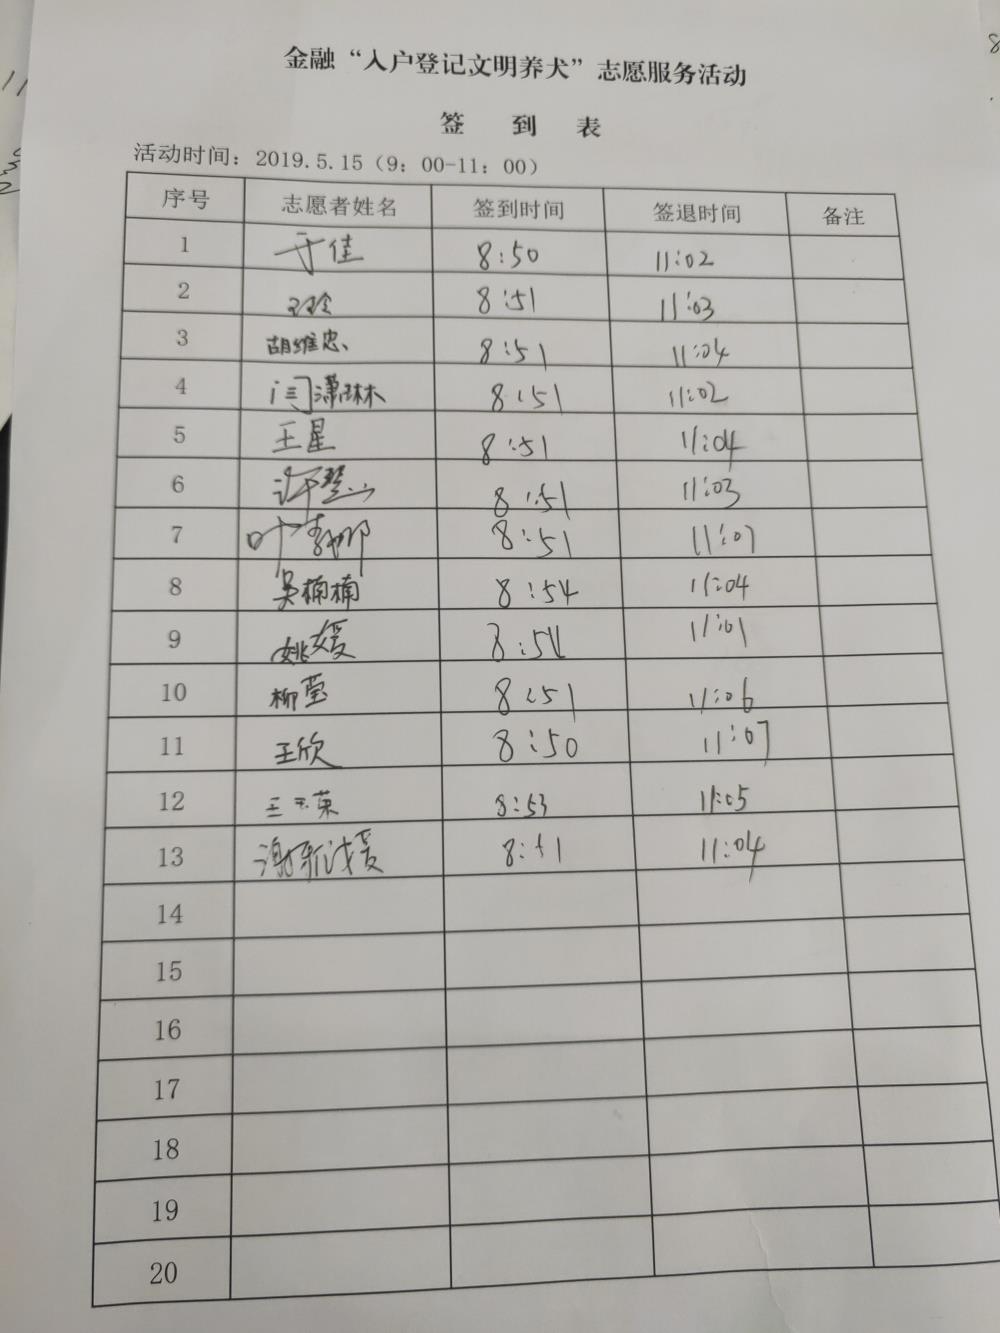 金融“入户登记文明养犬”志愿服务活动
签 到 表
活动时间：2019.5.15（9：00-11：00）
序号 志愿者姓名 签到时间 签退时间 备注
1 于佳 8:50 11:02
2 王玲 8:51 11:03
3 胡维忠 8:51 11:04
4 闫潇琳 8:51 11:02
5 王星 8:51 11:04
6 8:51 11:03
7 叶 娜 8:51 11:07
8 吴楠楠 8:54 11:04
9 姚媛 8:54 11:01
10 柳莹 8:51 11:06
11 王欣 8:50 11:07
12 王玉荣 8:53 11:05
13 谢 媛 8:51 11:04
14
15
16
17
18
19
20